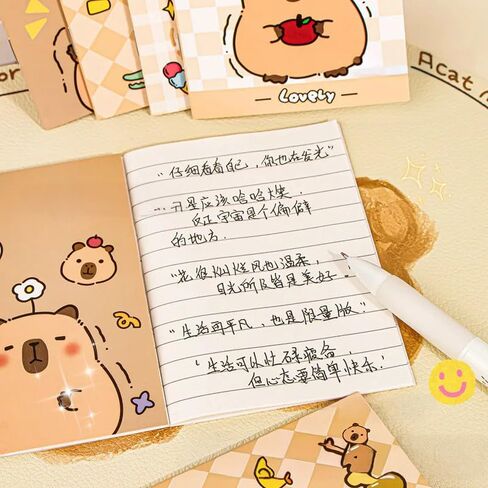 Lovely
Acat
"仔细看看自己，你也在发光"
卫星应该哈哈大笑，
反正宇宙是个偏僻
的地方.
"花很灿烂风也温柔，
目光所及皆是美好
"生活再平凡，也是限量版"
"生活可以忙碌疲惫，
但心态要简单快乐.